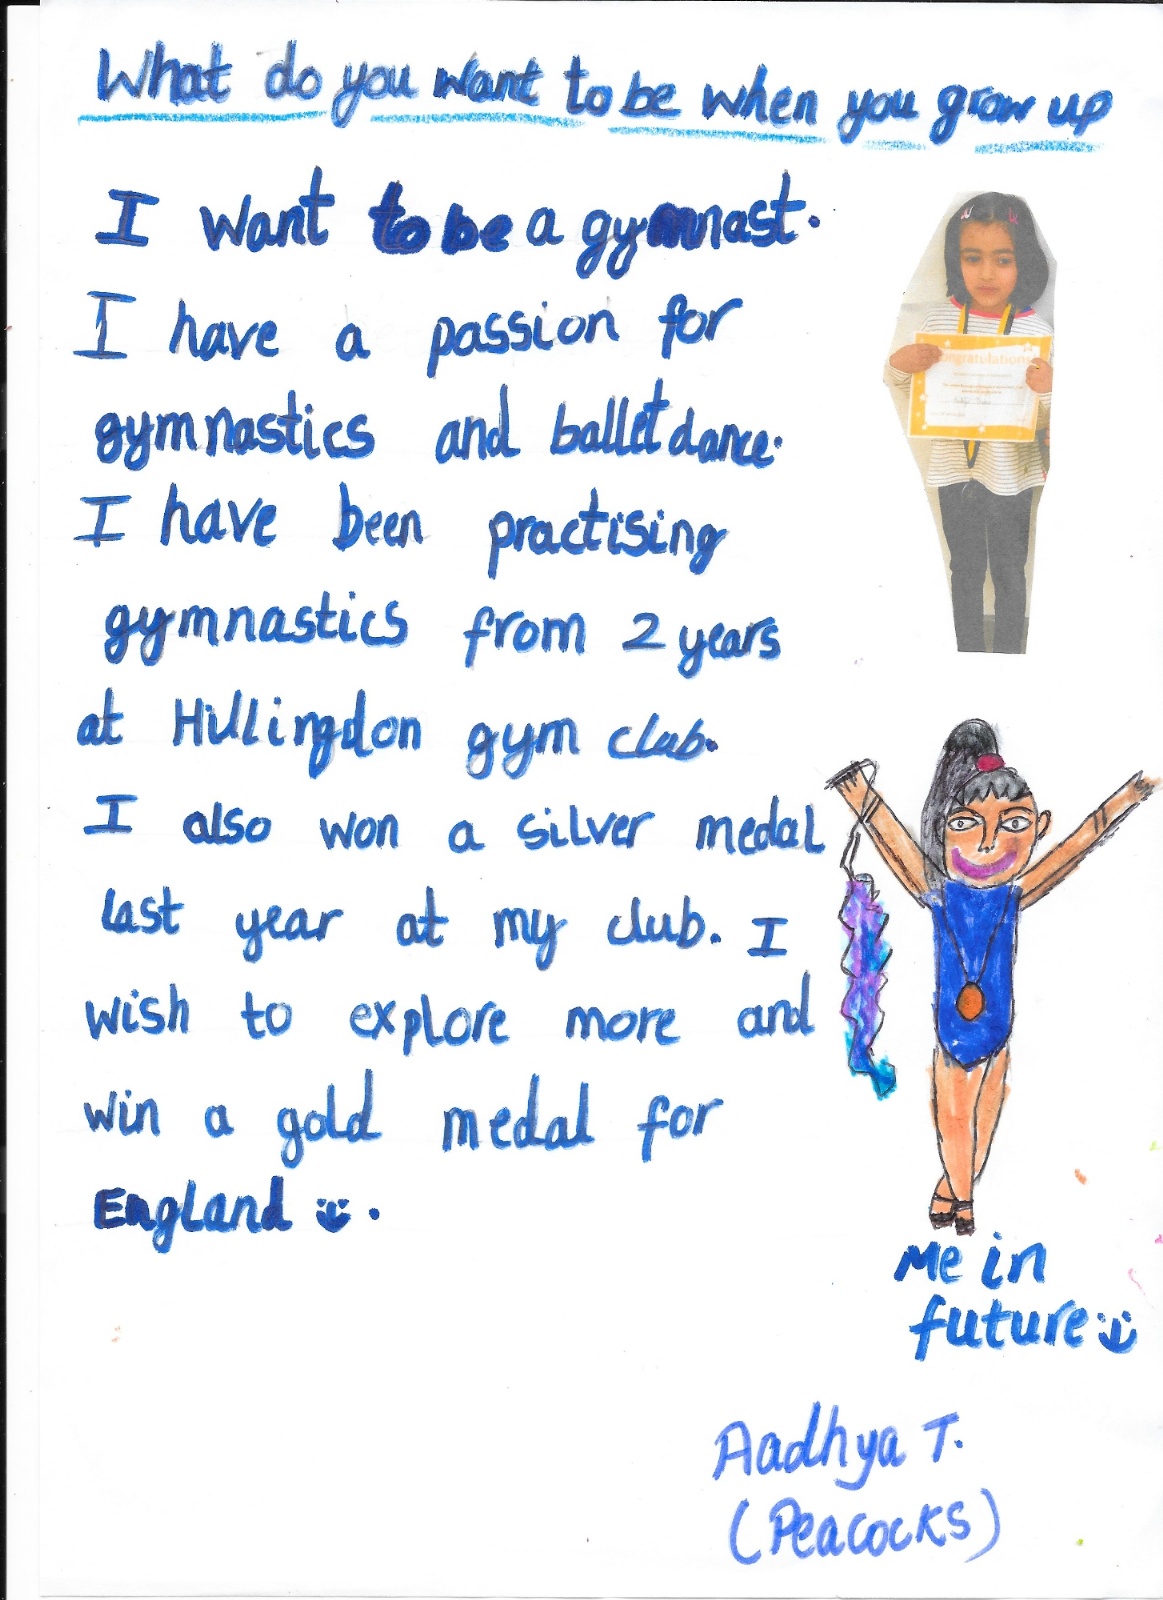 What do you want to be when you grow up
I want to be a gymnast.
I have a passion for
gymnastics and ballet dance.
I have been practising
gymnastics from 2 years
at Hillingdon gym club.
I also won a silver medal
last year at my club. I
wish to explore more and
win a gold medal for
England .
Congratulations
Me in
future
Aadhya T.
(Peacocks)